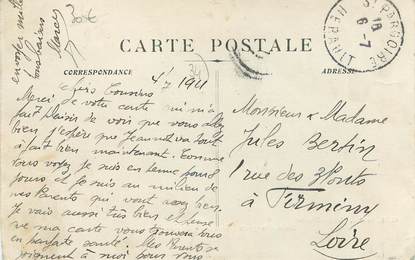 envoyer mille
30€
CARTE POSTALE
CORRESPONDANCE
ADRESSE
PARGOIRE
6-7
HERAULT
4/7 1911
Chers Cousins
Merci de votre carte qui m'a
fait plaisir de voir que vous allez
bien j'espère que Jeanne va tout
à fait bien maintenant. Comme
vous voyez je suis en
jours et je suis au milieu de
mes Parents qui vont assez bien.
Je vais aussi très bien et
ma carte vous trouvera tous
en parfaite santé. Mes Parents se
joignent à moi pour vous
Monsieur & Madame
Jules Bertin
1 rue des 3 Ponts
à Firminy
Loire